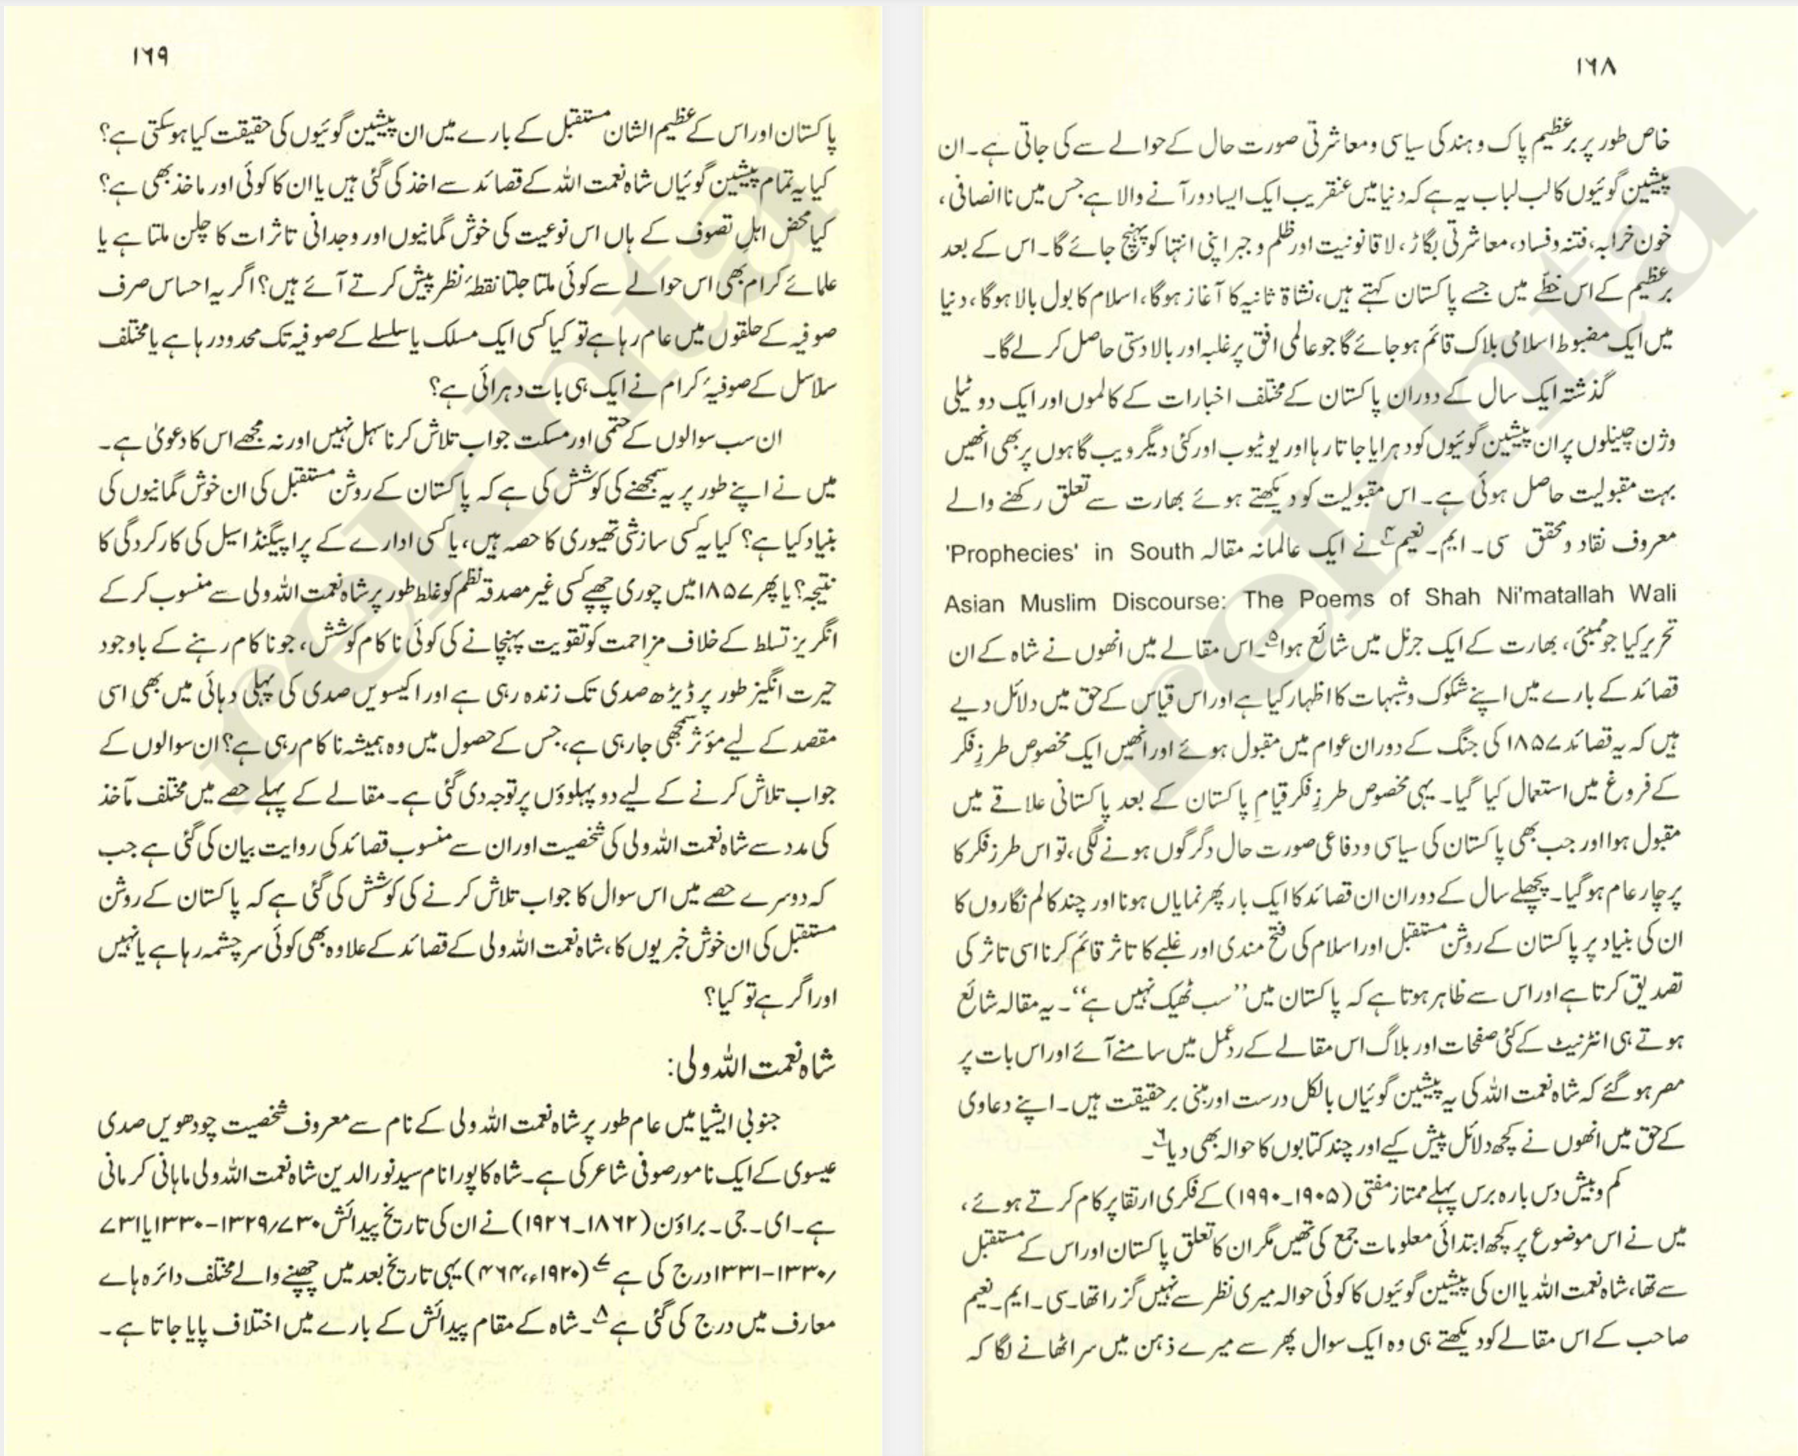 ۱۶۸
خاص طور پر برعظیم پاک و ہند کی سیاسی و معاشرتی صورت حال کے حوالے سے کی جاتی ہے۔ ان
پیشین گوئیوں کا لب لباب یہ ہے کہ دنیا میں عنقریب ایک ایسا دور آنے والا ہے جس میں ناانصافی،
خون خرابہ، فتنہ و فساد، معاشرتی بگاڑ، لاقانونیت اور ظلم و جبر اپنی انتہا کو پہنچ جائے گا۔ اس کے بعد
برعظیم کے اس خطّے میں جسے پاکستان کہتے ہیں، نشاۃ ثانیہ کا آغاز ہوگا، اسلام کا بول بالا ہوگا، دنیا
میں ایک مضبوط اسلامی بلاک قائم ہو جائے گا جو عالمی افق پر غلبہ اور بالادستی حاصل کر لے گا۔
گذشتہ ایک سال کے دوران پاکستان کے مختلف اخبارات کے کالموں اور ایک دو ٹیلی
وژن چینلوں پر ان پیشین گوئیوں کو دہرایا جاتا رہا اور یوٹیوب اور کئی دیگر ویب گاہوں پر بھی انھیں
بہت مقبولیت حاصل ہوئی ہے۔ اس مقبولیت کو دیکھتے ہوئے بھارت سے تعلق رکھنے والے
معروف نقاد و محقق سی۔ ایم۔ نعیم۴ نے ایک عالمانہ مقالہ 'Prophecies' in South
Asian Muslim Discourse: The Poems of Shah Ni'matallah Wali
تحریر کیا جو ممبئی، بھارت کے ایک جرنل میں شائع ہوا۵۔ اس مقالے میں انھوں نے شاہ کے ان
قصائد کے بارے میں اپنے شکوک و شبہات کا اظہار کیا ہے اور اس قیاس کے حق میں دلائل دیے
ہیں کہ یہ قصائد ۱۸۵۷ کی جنگ کے دوران عوام میں مقبول ہوئے اور انھیں ایک مخصوص طرزِ فکر
کے فروغ میں استعمال کیا گیا۔ یہی مخصوص طرزِ فکر قیامِ پاکستان کے بعد پاکستانی علاقے میں
مقبول ہوا اور جب بھی پاکستان کی سیاسی و دفاعی صورت حال دگرگوں ہونے لگی، تو اس طرز فکر کا
پرچار عام ہو گیا۔ پچھلے سال کے دوران ان قصائد کا ایک بار پھر نمایاں ہونا اور چند کالم نگاروں کا
ان کی بنیاد پر پاکستان کے روشن مستقبل اور اسلام کی فتح مندی اور غلبے کا تاثر قائم کرنا اسی تاثر کی
تصدیق کرتا ہے اور اس سے ظاہر ہوتا ہے کہ پاکستان میں ’’سب ٹھیک نہیں ہے‘‘۔ یہ مقالہ شائع
ہوتے ہی انٹرنیٹ کے کئی صفحات اور بلاگ اس مقالے کے ردِعمل میں سامنے آئے اور اس بات پر
مصر ہو گئے کہ شاہ نعمت اللہ کی یہ پیشین گوئیاں بالکل درست اور مبنی بر حقیقت ہیں۔ اپنے دعاوی
کے حق میں انھوں نے کچھ دلائل پیش کیے اور چند کتابوں کا حوالہ بھی دیا۶۔
کم و بیش دس بارہ برس پہلے ممتاز مفتی (۱۹۰۵۔۱۹۹۰) کے فکری ارتقا پر کام کرتے ہوئے،
میں نے اس موضوع پر کچھ ابتدائی معلومات جمع کی تھیں مگر ان کا تعلق پاکستان اور اس کے مستقبل
سے تھا، شاہ نعمت اللہ یا ان کی پیشین گوئیوں کا کوئی حوالہ میری نظر سے نہیں گزرا تھا۔ سی۔ ایم۔ نعیم
صاحب کے اس مقالے کو دیکھتے ہی وہ ایک سوال پھر سے میرے ذہن میں سر اٹھانے لگا کہ
۱۶۹
پاکستان اور اس کے عظیم الشان مستقبل کے بارے میں ان پیشین گوئیوں کی حقیقت کیا ہو سکتی ہے؟
کیا یہ تمام پیشین گوئیاں شاہ نعمت اللہ کے قصائد سے اخذ کی گئی ہیں یا ان کا کوئی اور ماخذ بھی ہے؟
کیا محض اہلِ تصوف کے ہاں اس نوعیت کی خوش گمانیوں اور وجدانی تاثرات کا چلن ملتا ہے یا
علمائے کرام بھی اس حوالے سے کوئی ملتا جلتا نقطۂ نظر پیش کرتے آئے ہیں؟ اگر یہ احساس صرف
صوفیہ کے حلقوں میں عام رہا ہے تو کیا کسی ایک مسلک یا سلسلے کے صوفیہ تک محدود رہا ہے یا مختلف
سلاسل کے صوفیۂ کرام نے ایک ہی بات دہرائی ہے؟
ان سب سوالوں کے حتمی اور مسکت جواب تلاش کرنا سہل نہیں اور نہ مجھے اس کا دعویٰ ہے۔
میں نے اپنے طور پر یہ سمجھنے کی کوشش کی ہے کہ پاکستان کے روشن مستقبل کی ان خوش گمانیوں کی
بنیاد کیا ہے؟ کیا یہ کسی سازشی تھیوری کا حصہ ہیں، یا کسی ادارے کے پراپیگنڈا سیل کی کارکردگی کا
نتیجہ؟ یا پھر ۱۸۵۷ میں چوری چھپے کسی غیر مصدقہ نظم کو غلط طور پر شاہ نعمت اللہ ولی سے منسوب کر کے
انگریز تسلط کے خلاف مزاحمت کو تقویت پہنچانے کی کوئی ناکام کوشش، جو ناکام رہنے کے باوجود
حیرت انگیز طور پر ڈیڑھ صدی تک زندہ رہی ہے اور اکیسویں صدی کی پہلی دہائی میں بھی اسی
مقصد کے لیے مؤثر سمجھی جا رہی ہے، جس کے حصول میں وہ ہمیشہ ناکام رہی ہے؟ ان سوالوں کے
جواب تلاش کرنے کے لیے دو پہلوؤں پر توجہ دی گئی ہے۔ مقالے کے پہلے حصے میں مختلف مآخذ
کی مدد سے شاہ نعمت اللہ ولی کی شخصیت اور ان سے منسوب قصائد کی روایت بیان کی گئی ہے جب
کہ دوسرے حصے میں اس سوال کا جواب تلاش کرنے کی کوشش کی گئی ہے کہ پاکستان کے روشن
مستقبل کی ان خوش خبریوں کا، شاہ نعمت اللہ ولی کے قصائد کے علاوہ بھی کوئی سرچشمہ رہا ہے یا نہیں
اور اگر ہے تو کیا؟
شاہ نعمت اللہ ولی:
جنوبی ایشیا میں عام طور پر شاہ نعمت اللہ ولی کے نام سے معروف شخصیت چودھویں صدی
عیسوی کے ایک نامور صوفی شاعر کی ہے۔ شاہ کا پورا نام سید نور الدین شاہ نعمت اللہ ولی ماہانی کرمانی
ہے۔ ای۔ جی۔ براؤن (۱۸۶۲۔۱۹۲۶) نے ان کی تاریخ پیدائش ۷۳۰/۱۳۲۹-۱۳۳۰ یا ۷۳۱
/۱۳۳۰-۱۳۳۱ درج کی ہے۷ (۱۹۲۰ء، ۴۶۴) یہی تاریخ بعد میں چھپنے والے مختلف دائرہ ہاے
معارف میں درج کی گئی ہے۸۔ شاہ کے مقام پیدائش کے بارے میں اختلاف پایا جاتا ہے۔
rekhta
rekhta